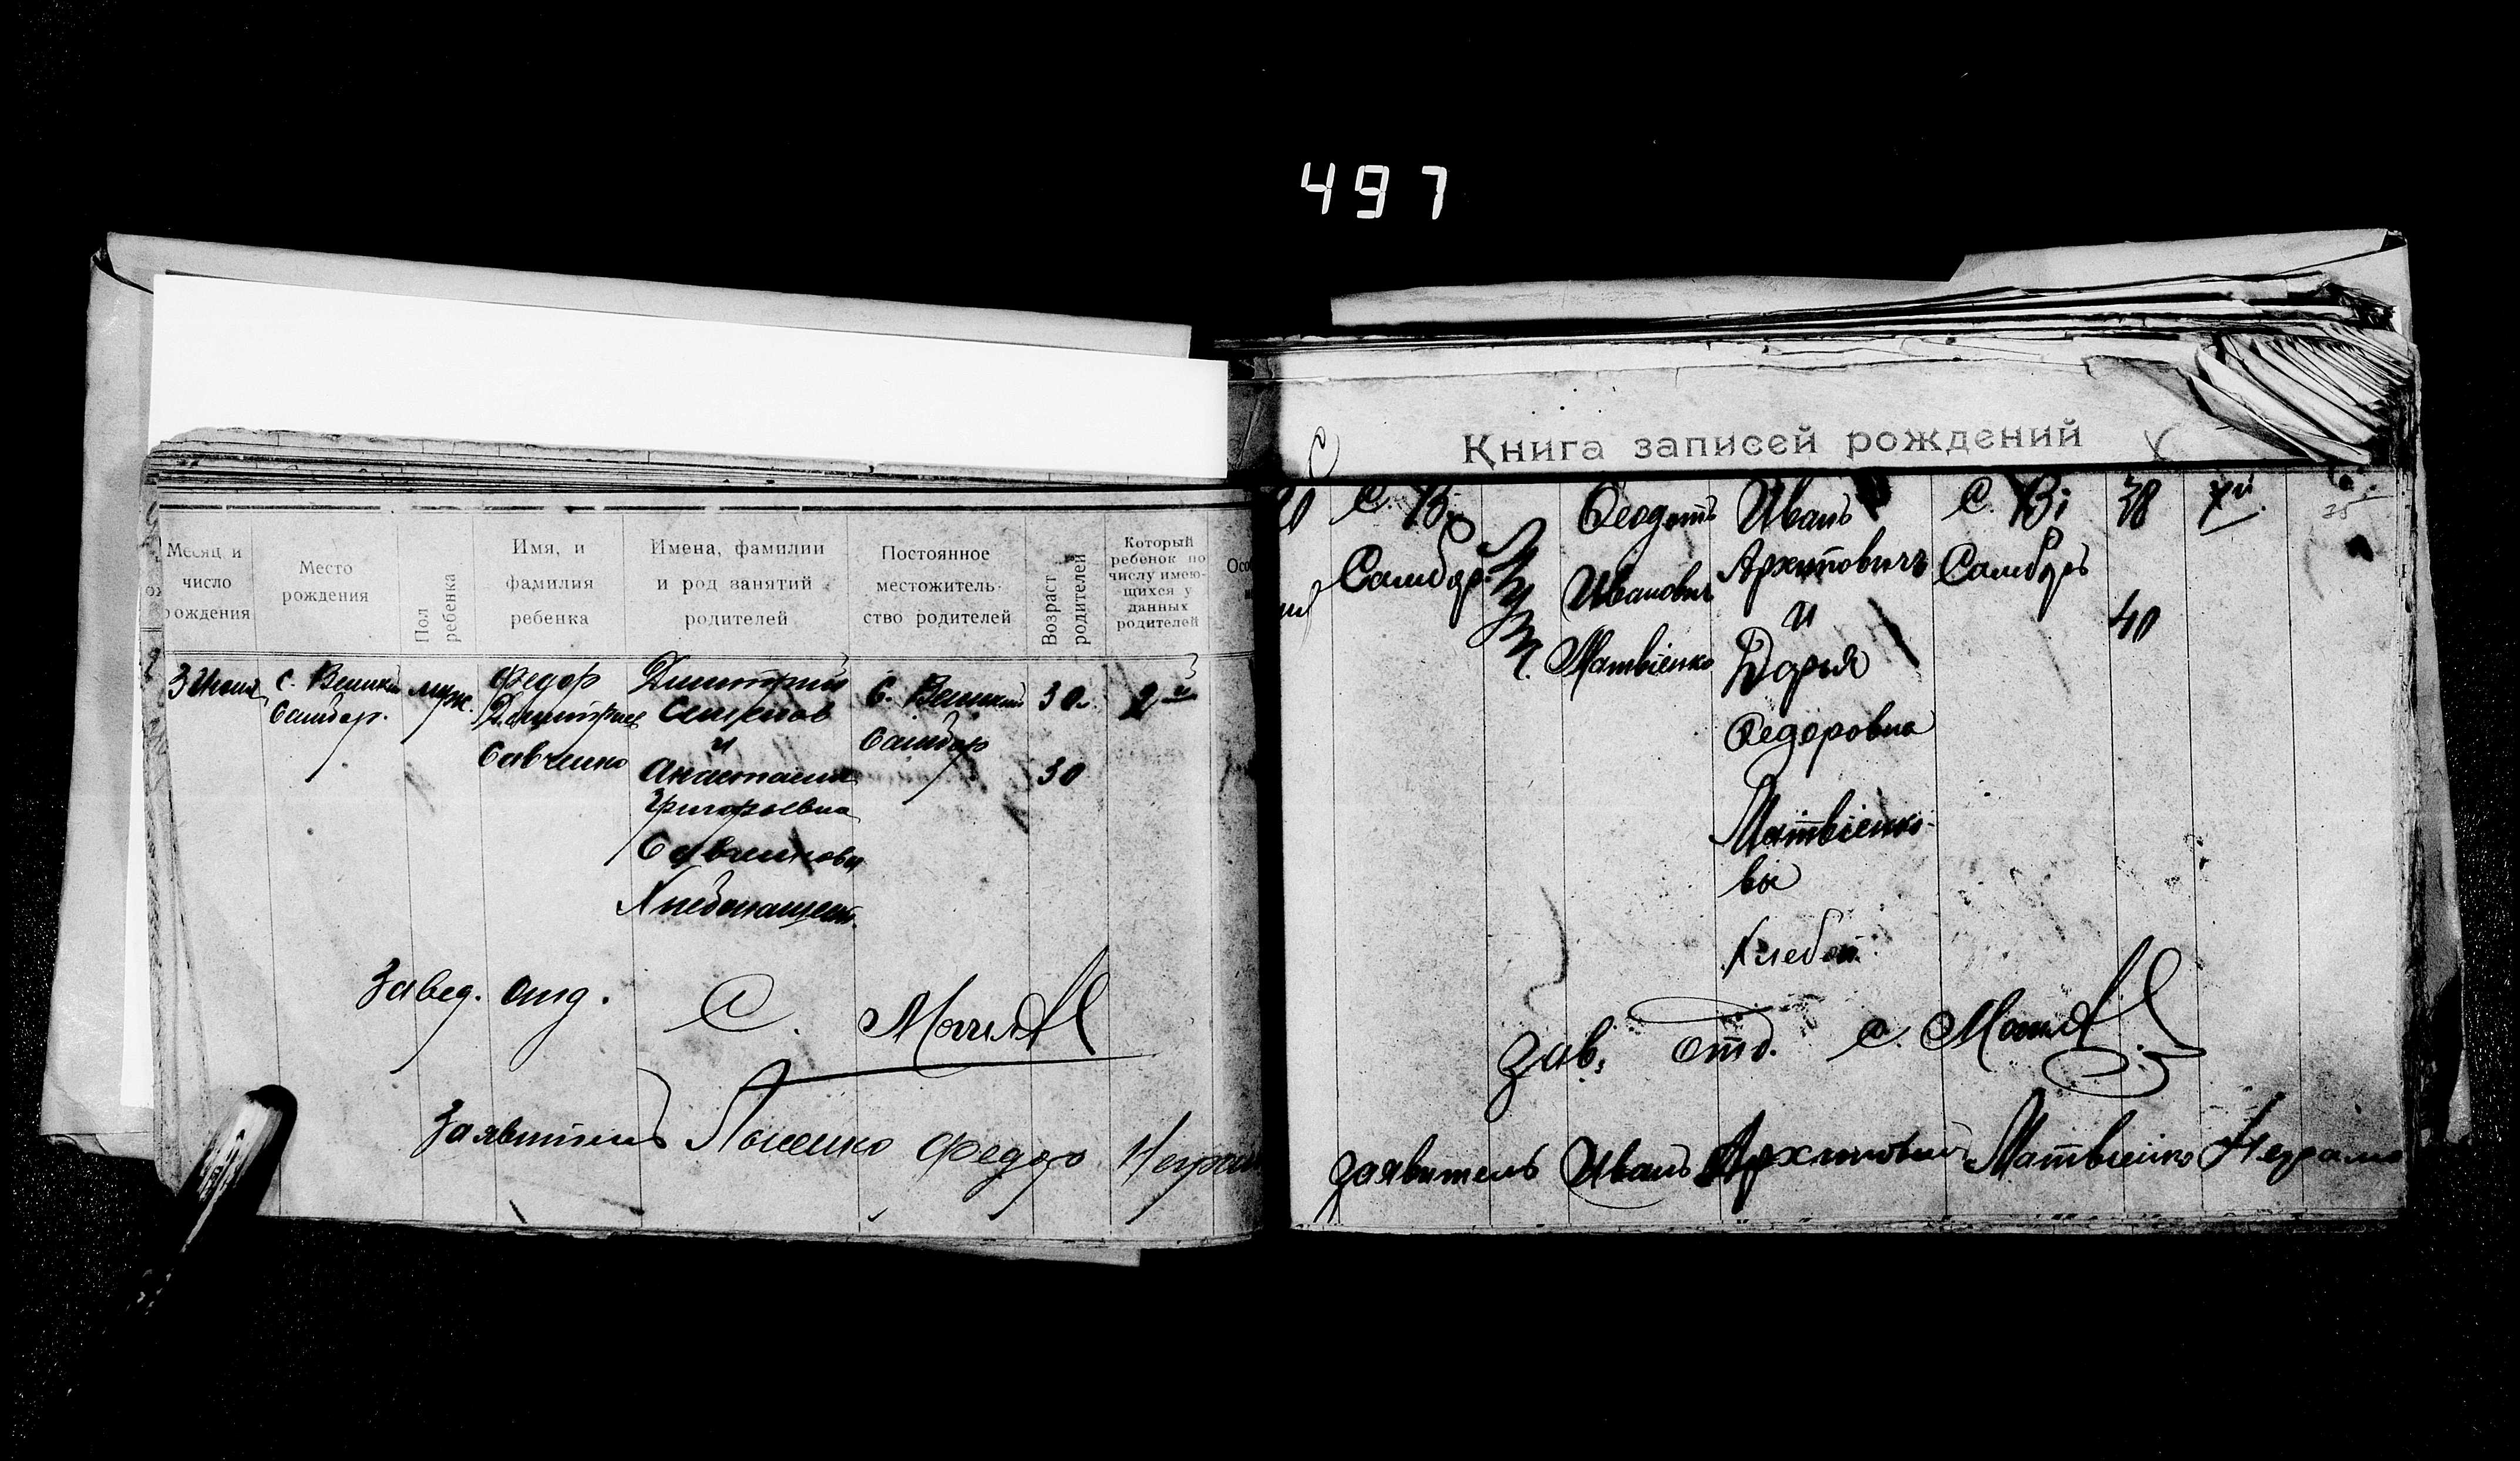 497
Месяц и число рождения
Место рождения
Пол ребенка
Имя, и фамилия ребенка
Имена, фамилии и род занятий родителей
Постоянное местожитель-ство родителей
Возраст родителей
Который ребенок по числу имею-щихся у данных родителей
3 Июня
с. Великий
Самбор.
муж.
Федор
Савченко
Димитрий
и
Анастасия
Григорьевна
С. Великий
Самбор
30
30
2й
Завед. отд.
С.
Заявитель
Федор
Книга записей рождений
С. Ві
Самбор
Феодотъ
Иванович
Матвіенко
Иванъ
Архиповичъ
и
Дарья
Федоровна
Матвіенко-
вы
Хлебоп.
С. Ві
Самборъ
38
40
Зав. отд. С.
Заявитель Иванъ Архипович Матвіенко Неграмо